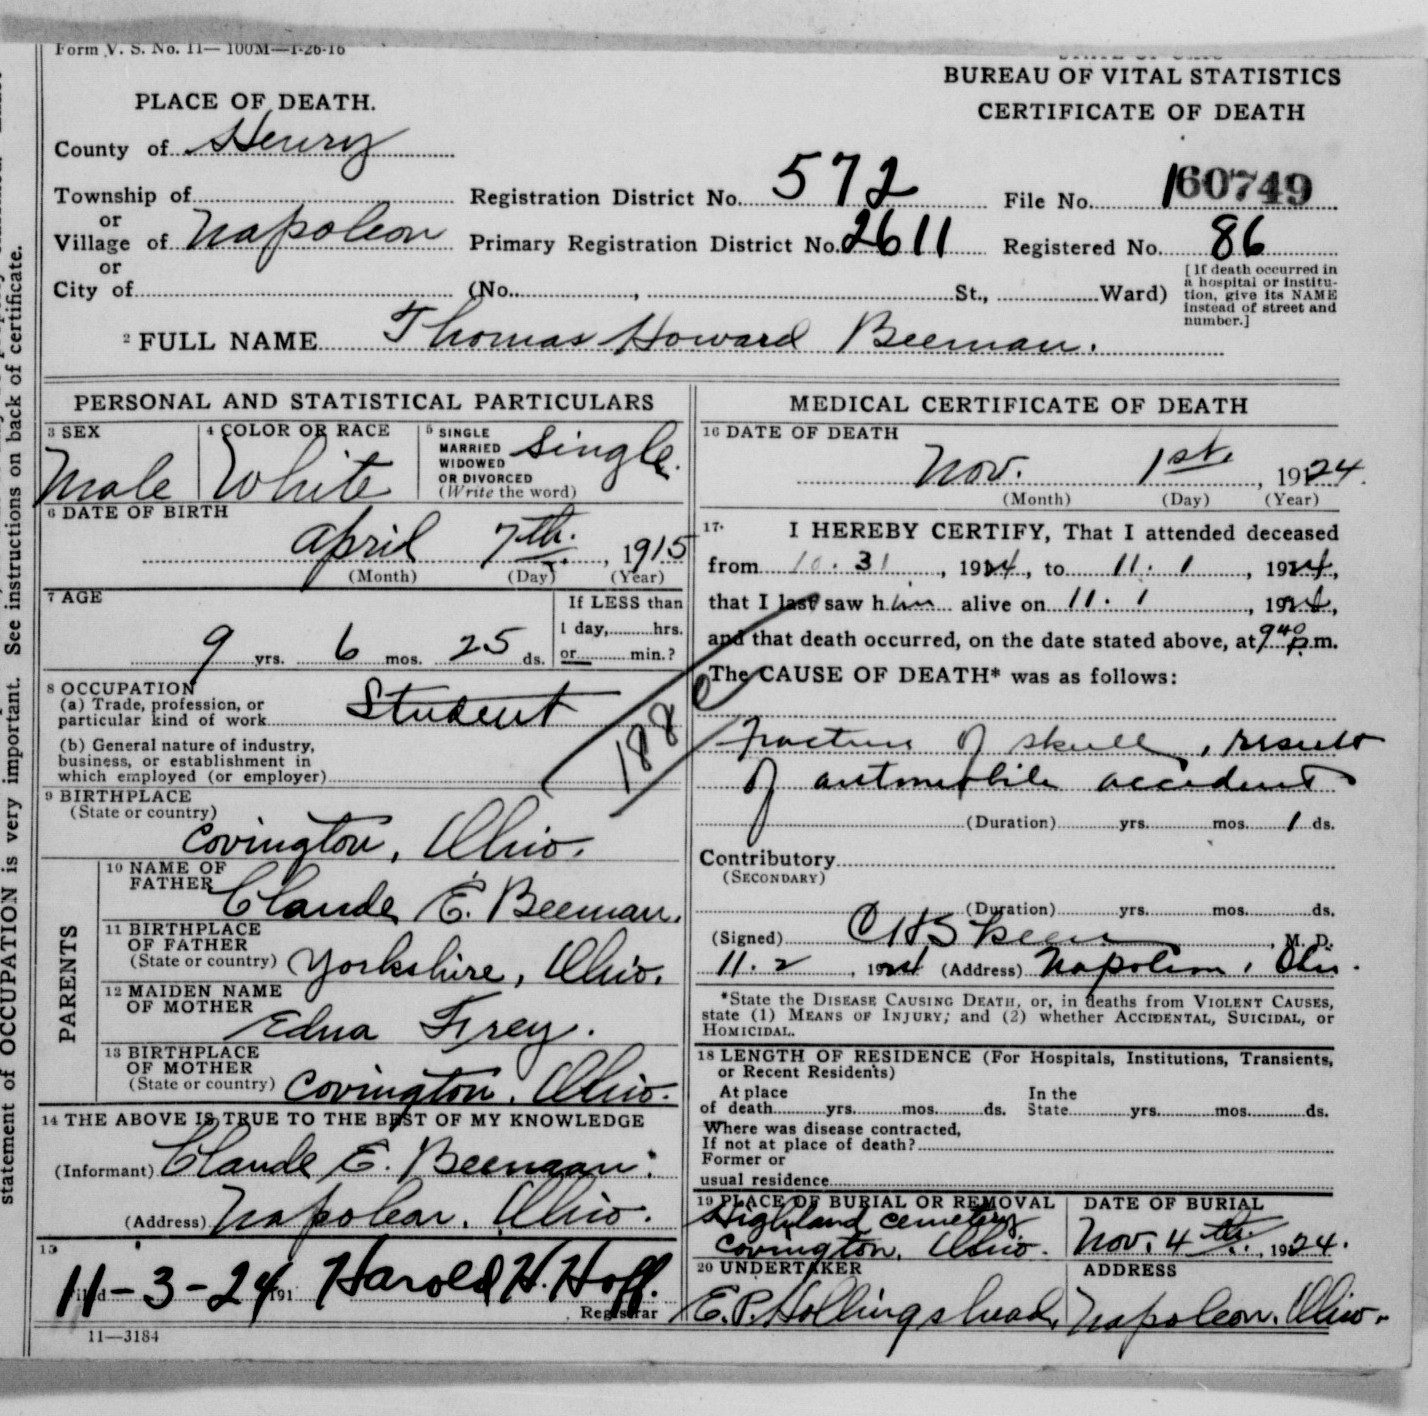 Form V. S. No. 11— 100M—1-26-16
BUREAU OF VITAL STATISTICS
CERTIFICATE OF DEATH
PLACE OF DEATH.
County of Henry
Township of
or
Village of Napoleon
or
City of
Registration District No. 572
Primary Registration District No. 2611
(No. , St., Ward)
File No. 160749
Registered No. 86
[If death occurred in
a hospital or institu-
tion, give its NAME
instead of street and
number.]
2 FULL NAME Thomas Howard Beeman.
PERSONAL AND STATISTICAL PARTICULARS
3 SEX
Male
4 COLOR OR RACE
White
5 SINGLE
MARRIED
WIDOWED
OR DIVORCED
(Write the word)
Single.
6 DATE OF BIRTH
April 7th. , 1915
(Month) (Day) (Year)
7 AGE
9 yrs. 6 mos. 25 ds.
If LESS than
1 day, hrs.
or min.?
8 OCCUPATION
(a) Trade, profession, or
particular kind of work Student
(b) General nature of industry,
business, or establishment in
which employed (or employer)
188
9 BIRTHPLACE
(State or country)
Covington, Ohio.
PARENTS
10 NAME OF
FATHER
Claude E. Beeman.
11 BIRTHPLACE
OF FATHER
(State or country) Yorkshire, Ohio.
12 MAIDEN NAME
OF MOTHER
Edna Frey.
13 BIRTHPLACE
OF MOTHER
(State or country) Covington, Ohio.
14 THE ABOVE IS TRUE TO THE BEST OF MY KNOWLEDGE
(Informant) Claude E. Beeman.
(Address) Napoleon, Ohio.
15
Filed 11-3-24 191 Harold H. Hoff.
Registrar
11—3184
MEDICAL CERTIFICATE OF DEATH
16 DATE OF DEATH
Nov. 1st , 1924.
(Month) (Day) (Year)
17. I HEREBY CERTIFY, That I attended deceased
from 10.31 , 1924, to 11.1 , 1924,
that I last saw him alive on 11.1 , 1924,
and that death occurred, on the date stated above, at 9 40 p.m.
The CAUSE OF DEATH* was as follows:
Fracture of skull, result
of automobile accident
(Duration) yrs. mos. 1 ds.
Contributory
(SECONDARY)
(Duration) yrs. mos. ds.
(Signed) , M. D.
11.2 , 1924 (Address) Napoleon, Ohio.
*State the DISEASE CAUSING DEATH, or, in deaths from VIOLENT CAUSES,
state (1) MEANS OF INJURY; and (2) whether ACCIDENTAL, SUICIDAL, or
HOMICIDAL.
18 LENGTH OF RESIDENCE (For Hospitals, Institutions, Transients,
or Recent Residents)
At place
of death yrs. mos. ds.
In the
State yrs. mos. ds.
Where was disease contracted,
If not at place of death?
Former or
usual residence
19 PLACE OF BURIAL OR REMOVAL
Highland Cemetery
Covington, Ohio.
DATE OF BURIAL
Nov. 4th., 1924.
20 UNDERTAKER
E. P. Hollingshead,
ADDRESS
Napoleon, Ohio.
statement of OCCUPATION is very important. See instructions on back of certificate.